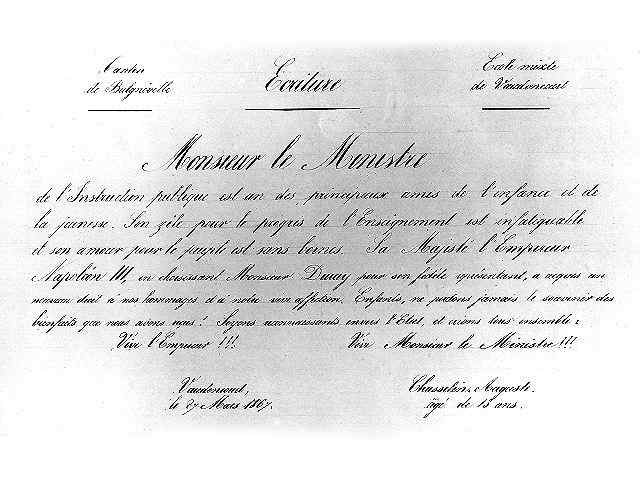 Canton
de Bulgnéville
Ecriture
Ecole mixte
de Vaudoncourt
Monsieur le Ministre
de l'Instruction publique est un des principaux amis de l'enfance et de
la jeunesse. Son zèle pour le progrès de l'Enseignement est infatiguable
et son amour pour le peuple est sans bornes. Sa Majesté l'Empereur
Napoléon III, en choisissant Monsieur Duruy pour son fidèle représentant, a acquis un
nouveau droit à nos hommages et à notre vive affection. Enfants, ne perdons jamais le souvenir des
bienfaits que nous avons reçus! Soyons reconnaissants envers l'Etat, et crions tous ensemble:
Vive l'Empereur !!! Vive Monsieur le Ministre !!!
Vaudoncourt,
le 27 Mars 1867.
Chasselin, Auguste.
âgé de 15 ans.